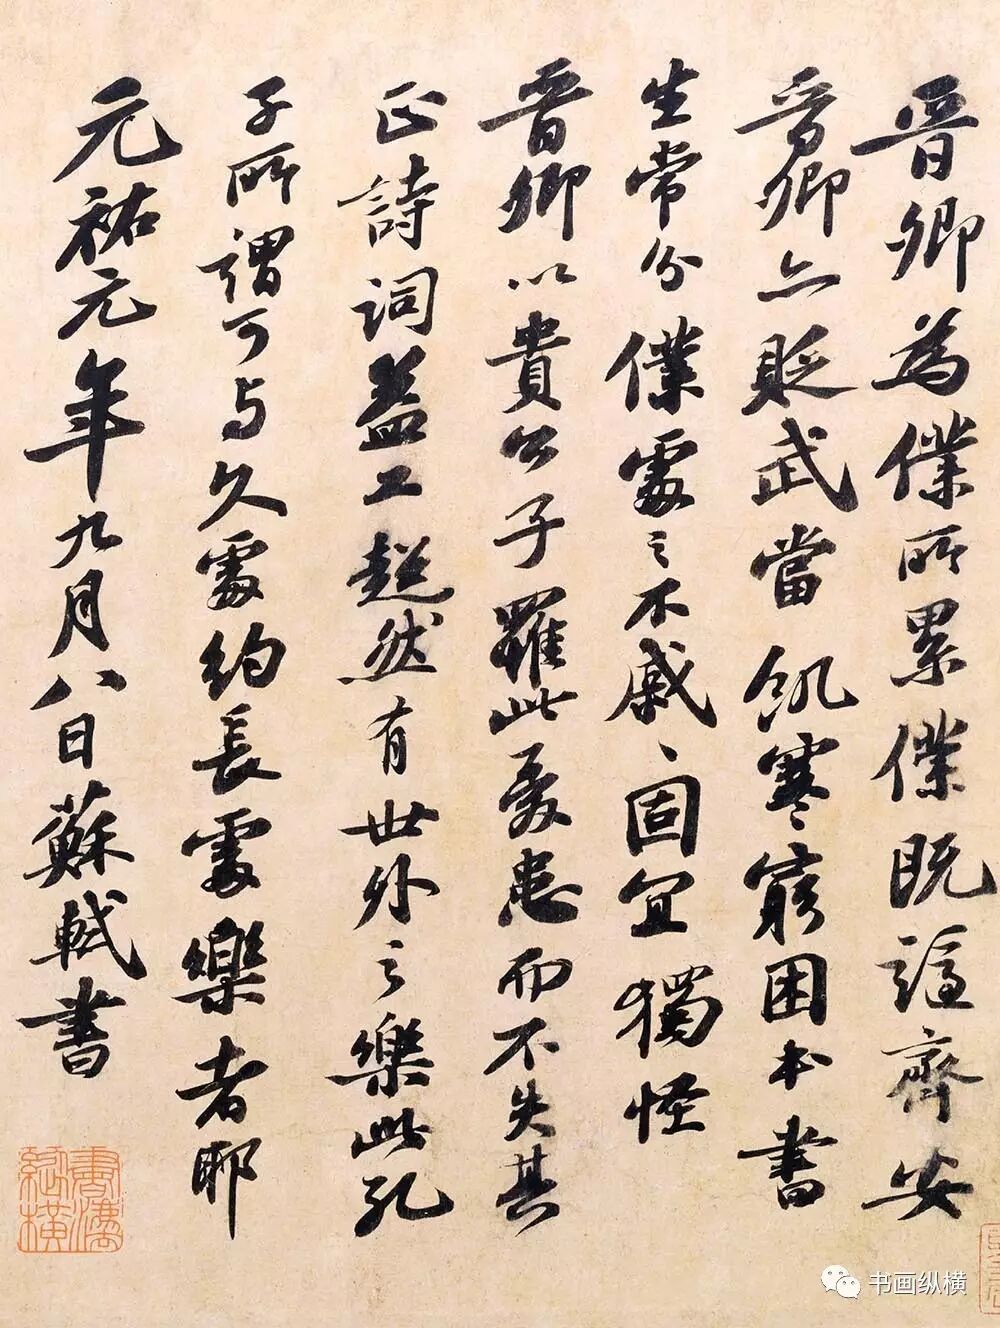 晉卿為僕所累僕既謫齊安
晉卿亦貶武當飢寒窮困本書
生常分僕處之不戚戚固宜獨怪
晉卿以貴公子罹此憂患而不失其
正詩詞益工超然有世外之樂此孔
子所謂可與久處約長處樂者耶
元祐元年九月八日蘇軾書
書畫縱橫
书画纵横